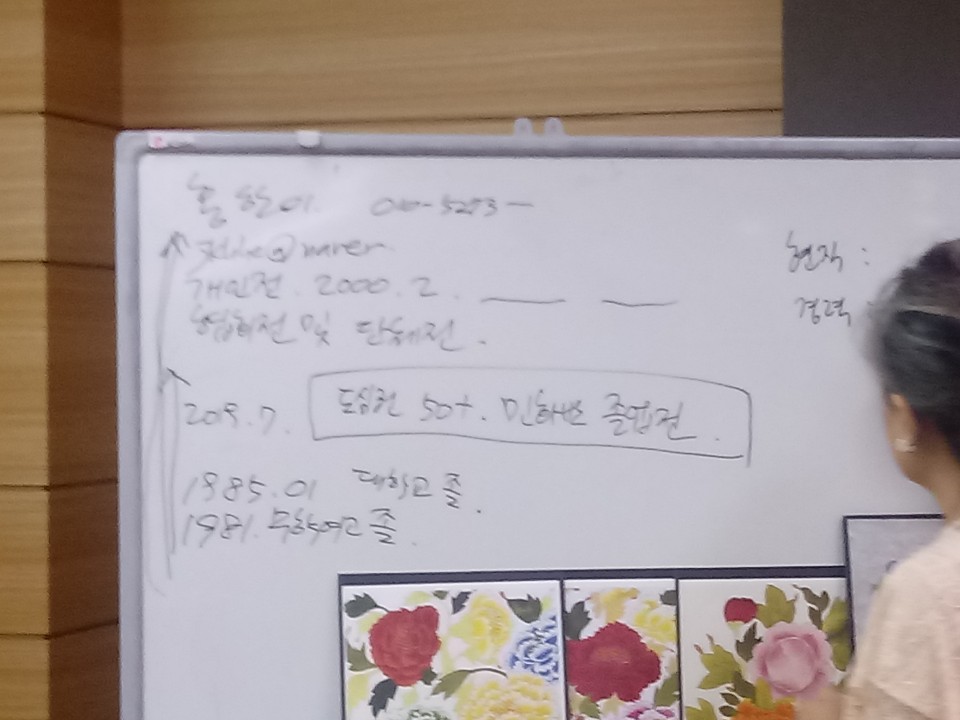 홍 010-5273-
@naver
개인전. 2000. 2.
및 단체전.
2019. 7. 50+. 민화반 졸업전.
1985. 01 대학교 졸.
1981. 무학여고 졸.
현직 :
경력